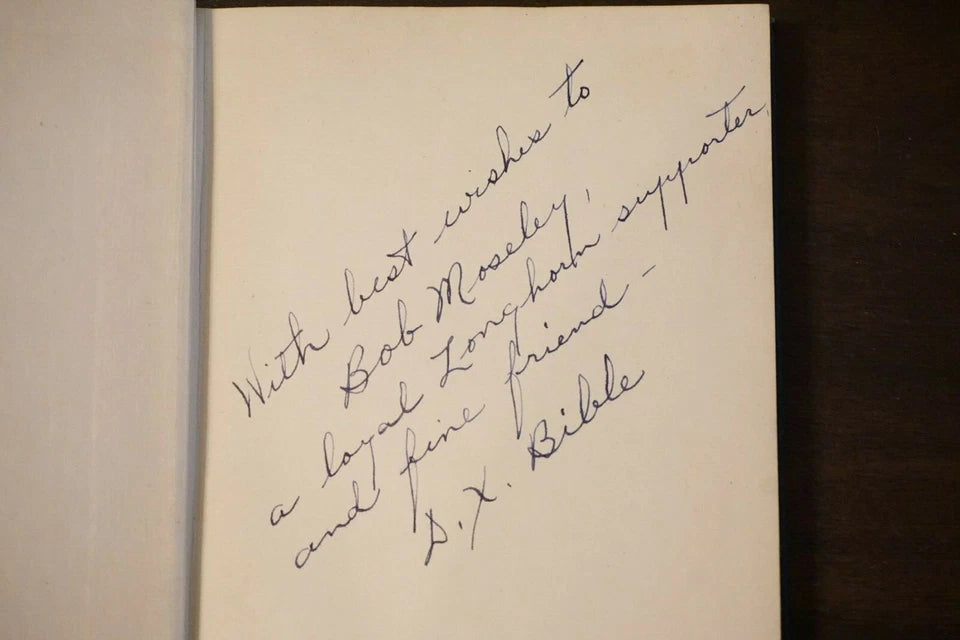 With best wishes to
Bob Moseley,
a loyal Longhorn supporter,
and fine friend —
D. X. Bible